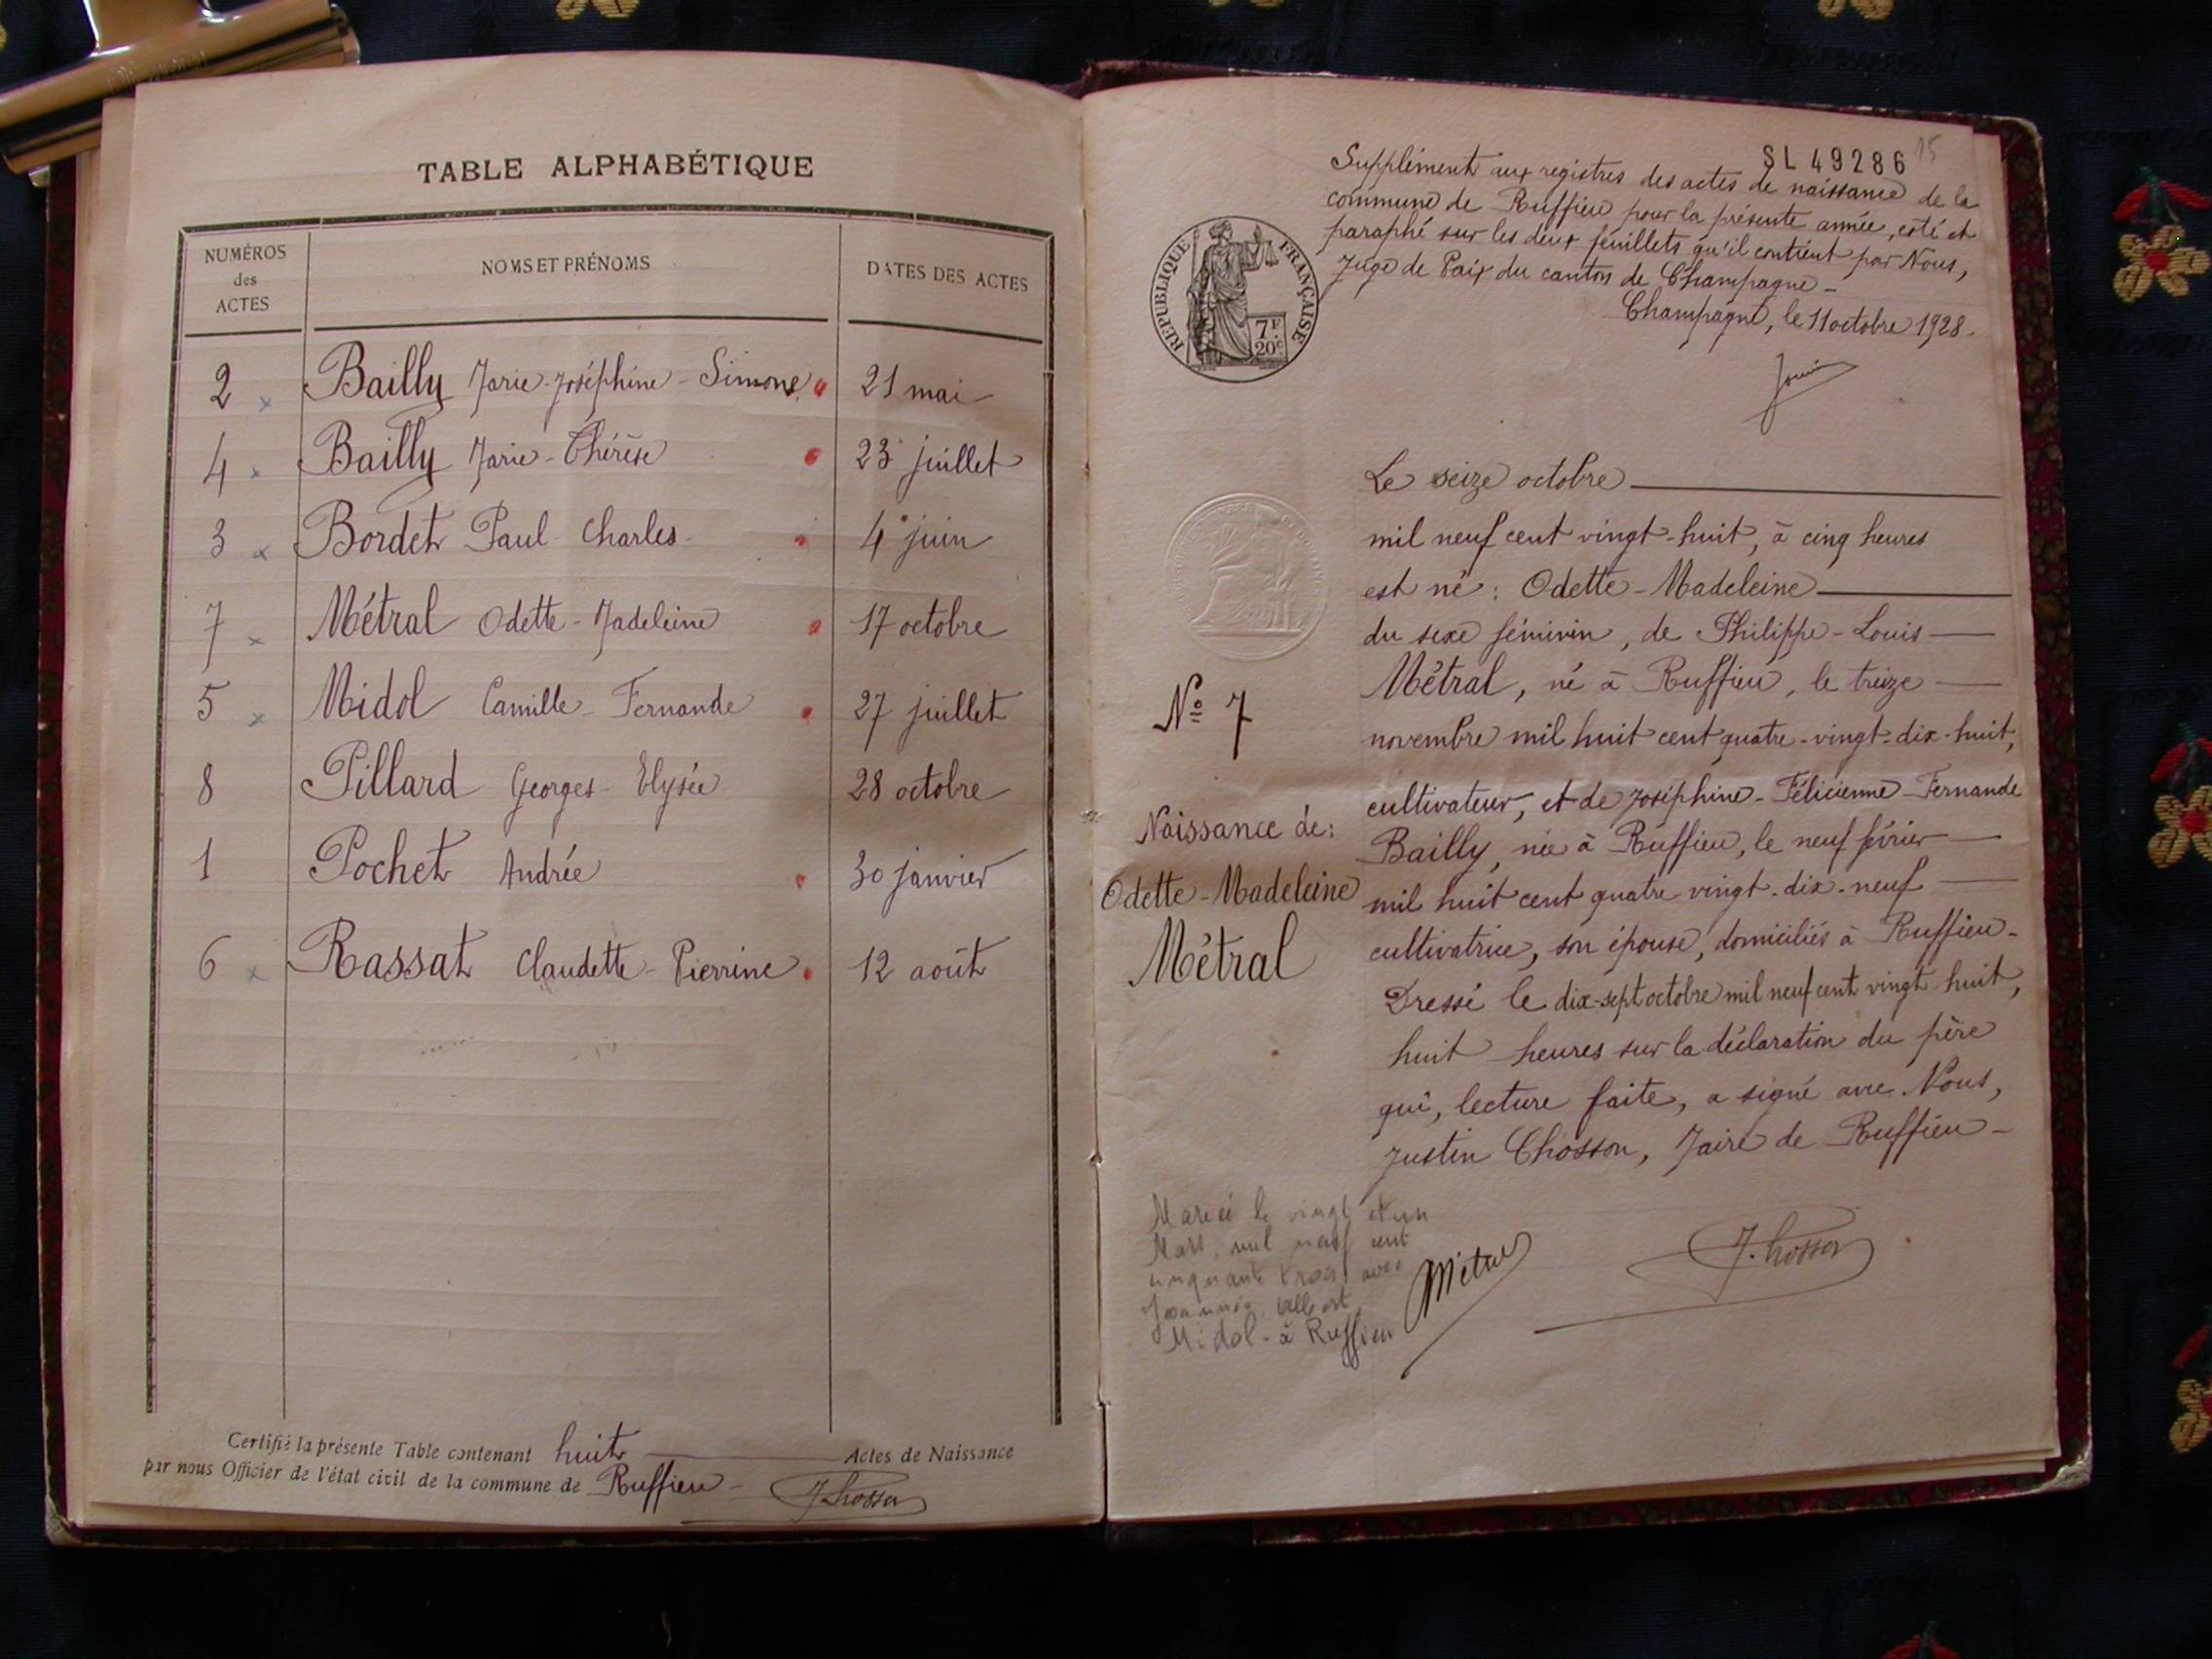 TABLE ALPHABÉTIQUE
NUMÉROS des ACTES NOMS ET PRÉNOMS DATES DES ACTES
2 Bailly Marie-Joséphine-Simone 21 mai
4 Bailly Marie-Thérèse 23 juillet
3 Bordet Paul-Charles 4 juin
7 Métral Odette-Madeleine 17 octobre
5 Midol Camille-Fernande 27 juillet
8 Pillard Georges-Elysée 28 octobre
1 Pochet Andrée 30 janvier
6 Rassat Claudette-Pierrine 12 août
Certifié la présente Table contenant huit Actes de Naissance
par nous Officier de l'état civil de la commune de Ruffieu-
J. Chosson
SL 49286 15
Supplément aux registres des actes de naissance de la
commune de Ruffieu pour la présente année, coté et
paraphé sur les deux feuillets qu'il contient par Nous,
Juge de Paix du canton de Champagne-
Champagne, le 11 octobre 1928.
RÉPUBLIQUE FRANÇAISE
7F
20c
Le seize octobre
mil neuf cent vingt-huit, à cinq heures
est né : Odette-Madeleine
du sexe féminin, de Philippe-Louis
Métral, né à Ruffieu, le treize
novembre mil huit cent quatre-vingt-dix-huit,
cultivateur, et de Joséphine-Félicienne-Fernande
Bailly, née à Ruffieu, le neuf février
mil huit cent quatre-vingt-dix-neuf
cultivatrice, son épouse, domiciliés à Ruffieu-
Dressé le dix-sept octobre mil neuf cent vingt-huit,
huit heures sur la déclaration du père
qui, lecture faite, a signé avec Nous,
Justin Chosson, Maire de Ruffieu-
Nº 7
Naissance de:
Odette-Madeleine
Métral
Mariée le vingt et un
Mars, mil neuf cent
cinquante trois avec
Joannès Albert
Midol-à Ruffieu
Métral
J. Chosson